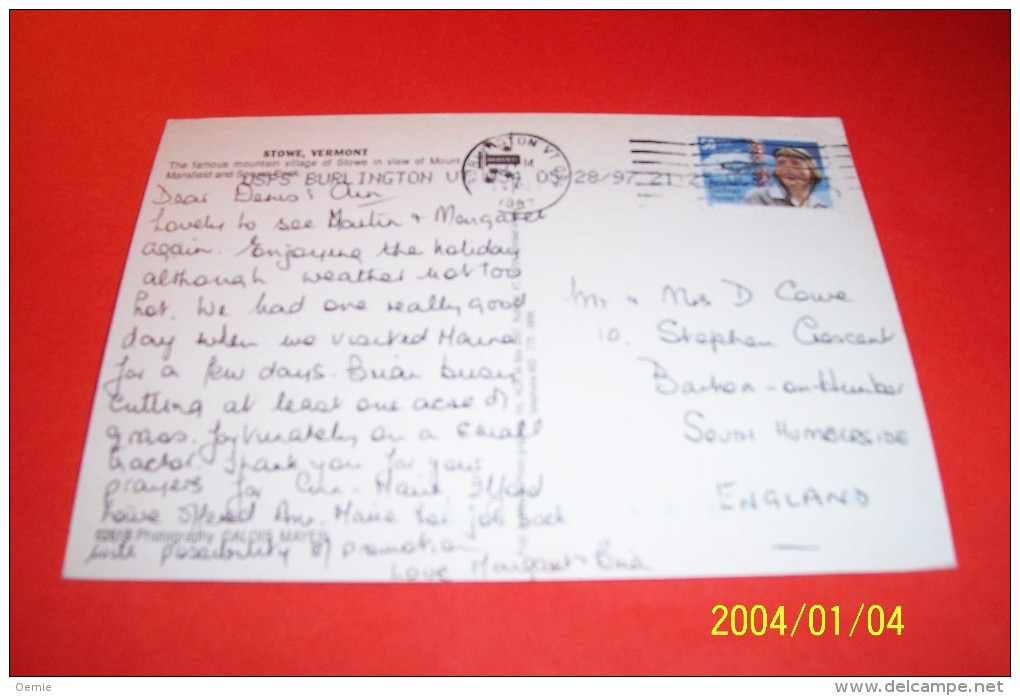 STOWE, VERMONT
The famous mountain village of Stowe in view of Mount
Mansfield and
USPS BURLINGTON VT 054 05/28/97
BURLINGTON VT
1997
Dear Denis & Ann
Lovely to see Martin & Margaret
again. Enjoying the holiday
although weather not too
hot. We had one really good
day when we visited Maine
for a few days. Brian busy
cutting at least one acre of
grass. fortunately on a small
tractor. Thank you for your
prayers for Ann-Marie. Ilford
have offered Ann-Marie her job back
with possibility of promotion
Love Margaret & Brian
Photography
Mr & Mrs D Cowe
10. Stephen Crescent
Barton-on-Humber
SOUTH HUMBERSIDE
ENGLAND
2004/01/04
Oemie
www.delcampe.net